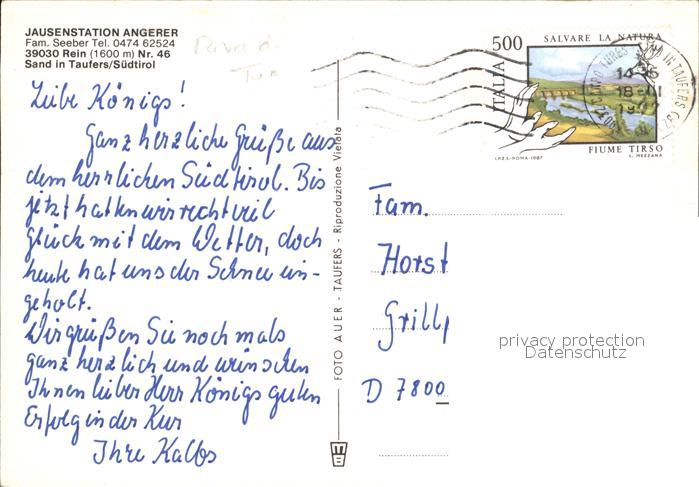 JAUSENSTATION ANGERER
Fam. Seeber Tel. 0474 62524
39030 Rein (1600 m) Nr. 46
Sand in Taufers/Südtirol
Liebe Königs!
Ganz herzliche Grüße aus
dem herrlichen Südtirol. Bis
jetzt hatten wir recht viel
Glück mit dem Wetter, doch
heute hat uns der Schnee ein-
geholt.
Wir grüßen Sie nochmals
ganz herzlich und wünschen
Ihnen lieber Herr Königs guten
Erfolg in der Kur
Ihre Kalbs
FOTO AUER - TAUFERS - Riproduzione Vietata
500
SALVARE LA NATURA
ITALIA
FIUME TIRSO
I.P.Z.S.-ROMA-1987
L. MEZZANA
18
Fam.
Horst
Grill
D 7800
privacy protection
Datenschutz